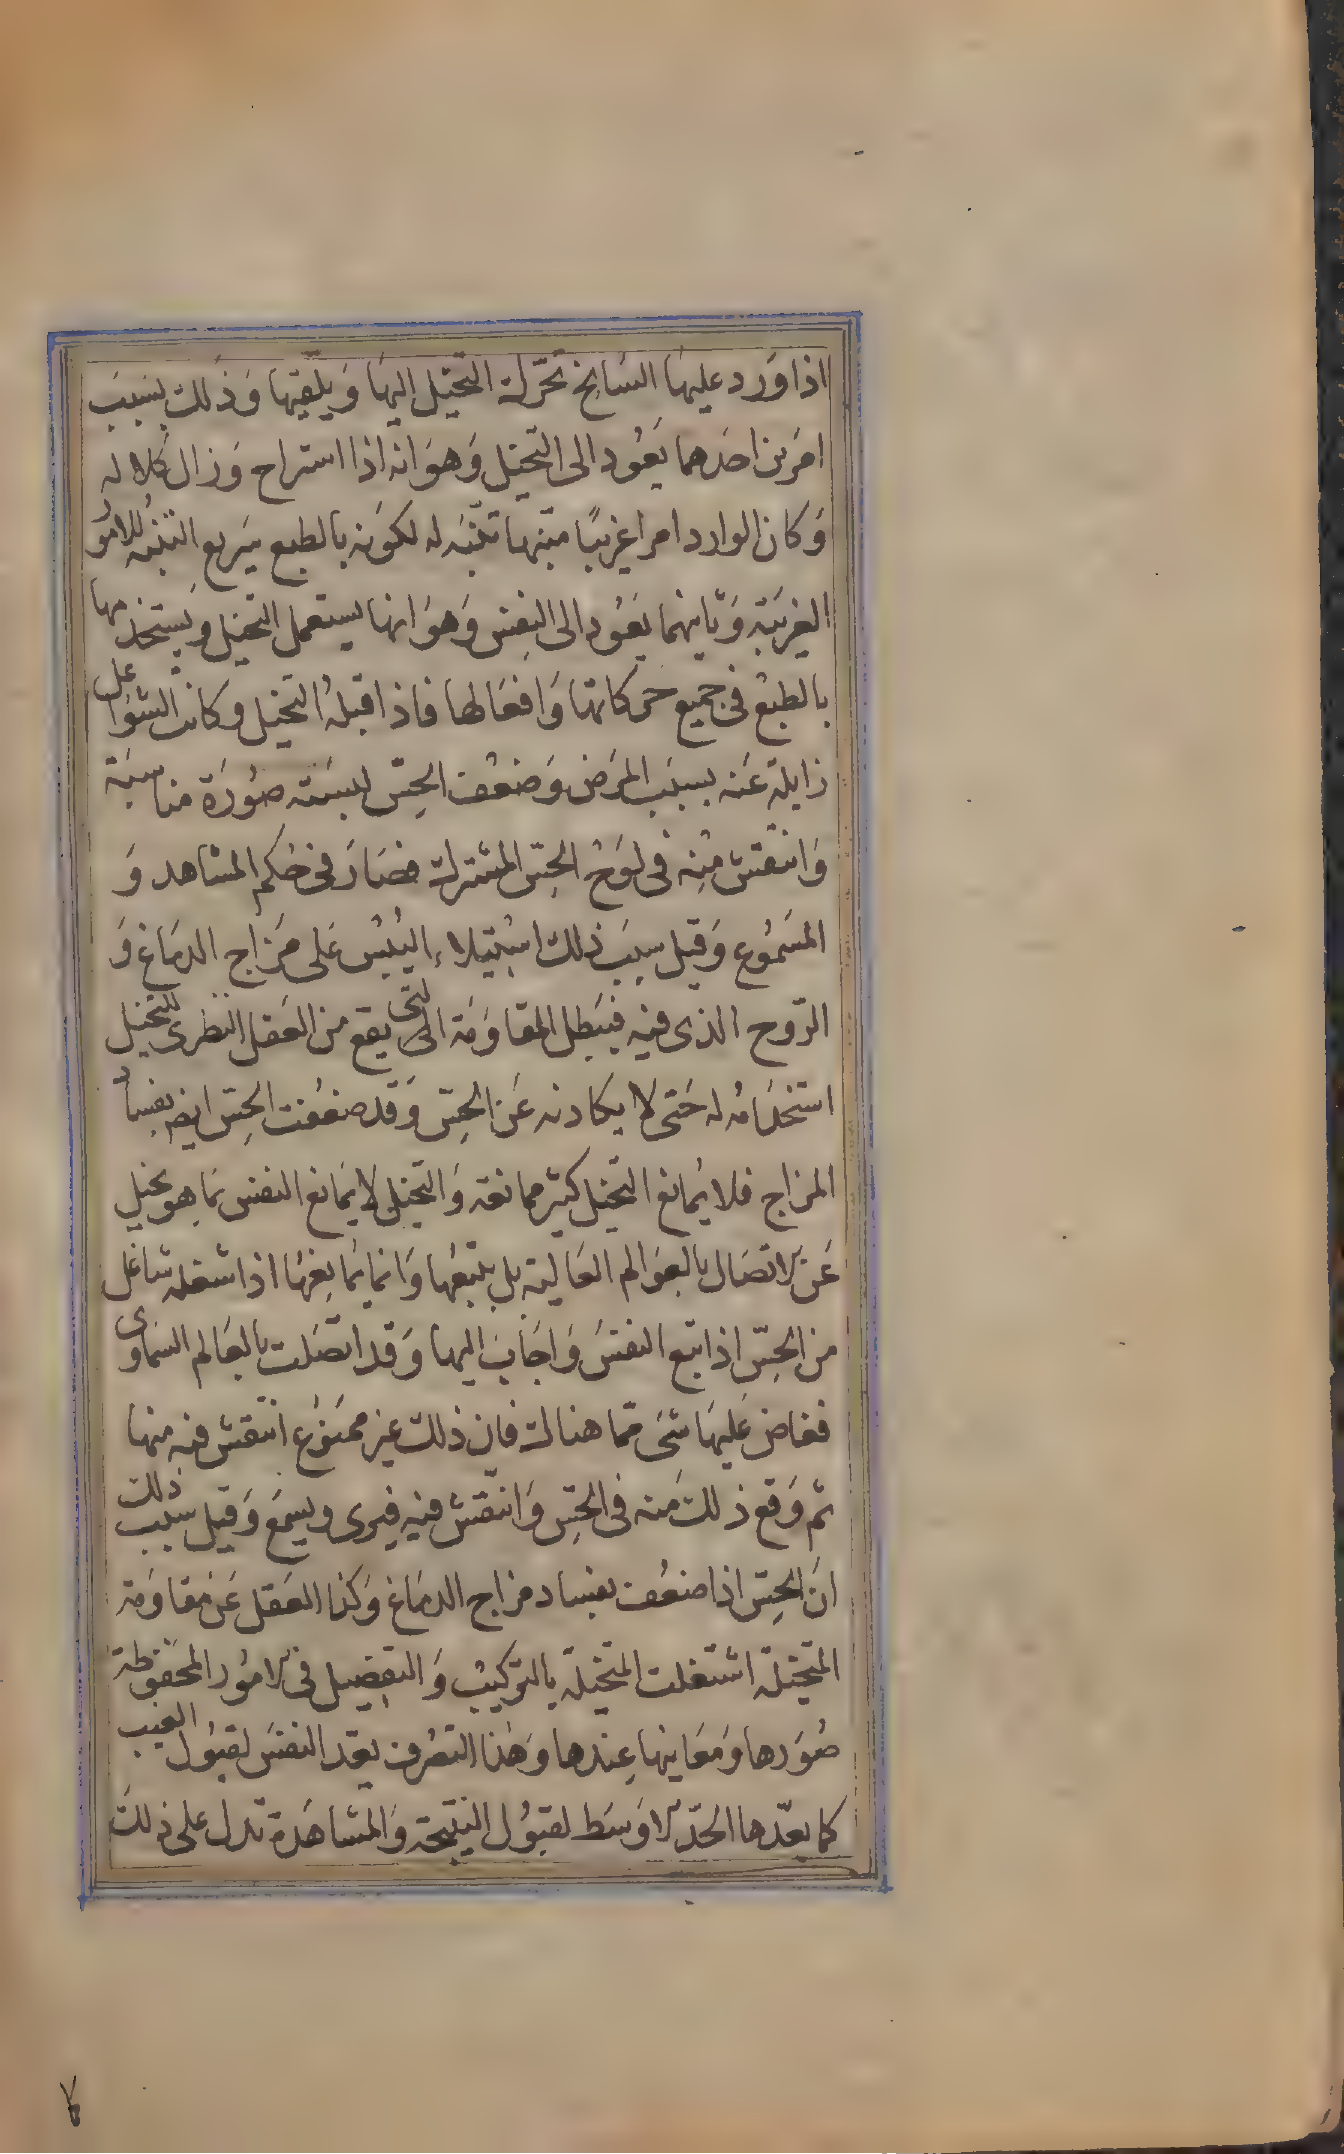 اذا ورد عليها السانح تحرك التخيل اليها و يلقيها و ذلك بسبب
امرين احدهما يعود الى التخيل و هو انه اذا استراح و زال كلاله
و كان الوارد امرا غريبا منبها تنبه له لكونه بالطبع سريع التنبه للامور
الغريبة و ثانيهما يعود الى النفس و هو انها يستعمل التخيل و يستخدمها
بالطبع فى جميع حركاتها و افعالها فاذا قبله التخيل و كانت الشواغل
زايلة عنه بسبب المرض و ضعف الحس لبسته صورة مناسبة
و انتقش منه فى لوح الحس المشترك فصار فى حكم المشاهد و
المسموع و قيل سبب ذلك استيلاء اليبس على مزاج الدماغ و
الروح الذى فيه فيبطل المقاومة التى يقع من العقل النظرى للتخيل
استخدامه له حتى لا يكاد نه عن الحس و قد ضعفت الحس ايضا بفساد
المزاج فلا يمانع التخيل كثير ممانعة و التخيل لا يمانع النفس بما هو تخيل
عن الاتصال بالعوالم العالية بل يتبعها و انما يمانعها اذا شغله شاغل
من الحس اذا تبع النفس و اجاب اليها و قد اتصلت بالعالم السماوى
ففاض عليها شى مما هنالك فان ذلك غير ممنوع انتقش فيه منها
ثم وقع ذلك منه فى الحس و انتقش فيه فيرى و يسمع و قيل سبب ذلك
ان الحس اذا ضعف بفساد مزاج الدماغ و كذا العقل عن مقاومة
المتخيلة اشتغلت المتخيلة بالتركيب و التفصيل فى الامور المحفوظة
صورها و معانيها عندها و هذا التصرف يعد النفس لقبول الغيب
كما يعدها الحد الاوسط لقبول النتيجة و المشاهدة تدل على ذلك